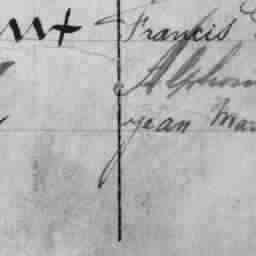 Francis
Alphon
Jean Mar